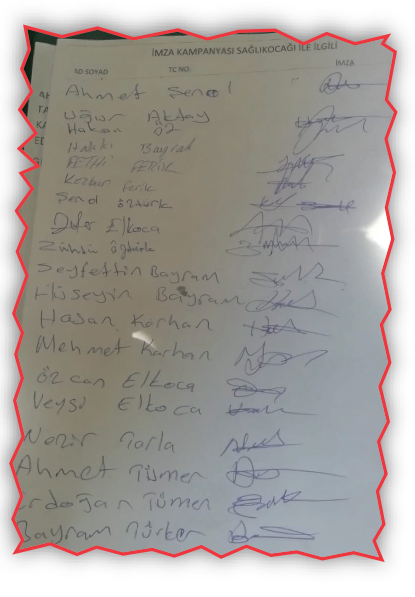 İMZA KAMPANYASI SAĞLIKOCAĞI İLE İLGİLİ
AD SOYAD TC NO: İMZA
Ahmet Şenol
Uğur Aktay
Hakan Öz
Hakkı Bayrak
FETHİ FERİK
Ferik
Şenol Öztürk
Elkoca
Zühtü Öztürk
Seyfettin Bayram
Hüseyin Bayram
Hasan Korhan
Mehmet Karhan
Özcan Elkoca
Veysi Elkoca
Nazir Tarla
Ahmet Tümer
Erdoğan Tümer
Bayram Türker